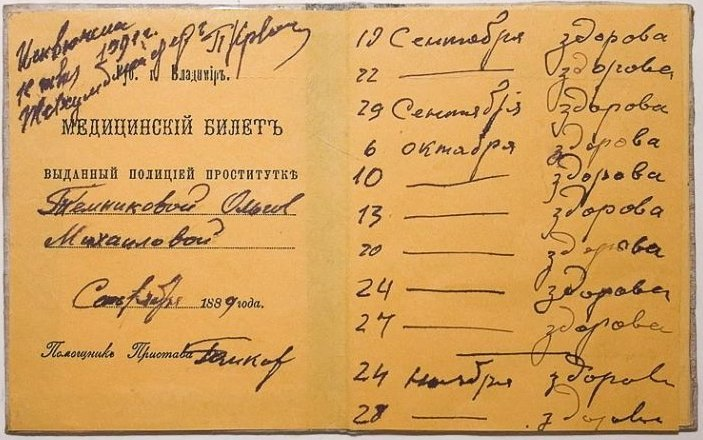 1891 г.
Губ. г. Владиміръ.
МЕДИЦИНСКІЙ БИЛЕТЪ
ВЫДАННЫЙ ПОЛИЦІЕЙ ПРОСТИТУТКѢ
Темниковой Ольгѣ
Михаиловой
Сентября 1889 года.
Помощникъ Пристава
19 Сентября здорова
22 — здорова
29 Сентября здорова
6 октября здорова
10 — здорова
13 — здорова
20 — здорова
24 — здорова
27 — здорова
24 ноября здорова
28 — здорова